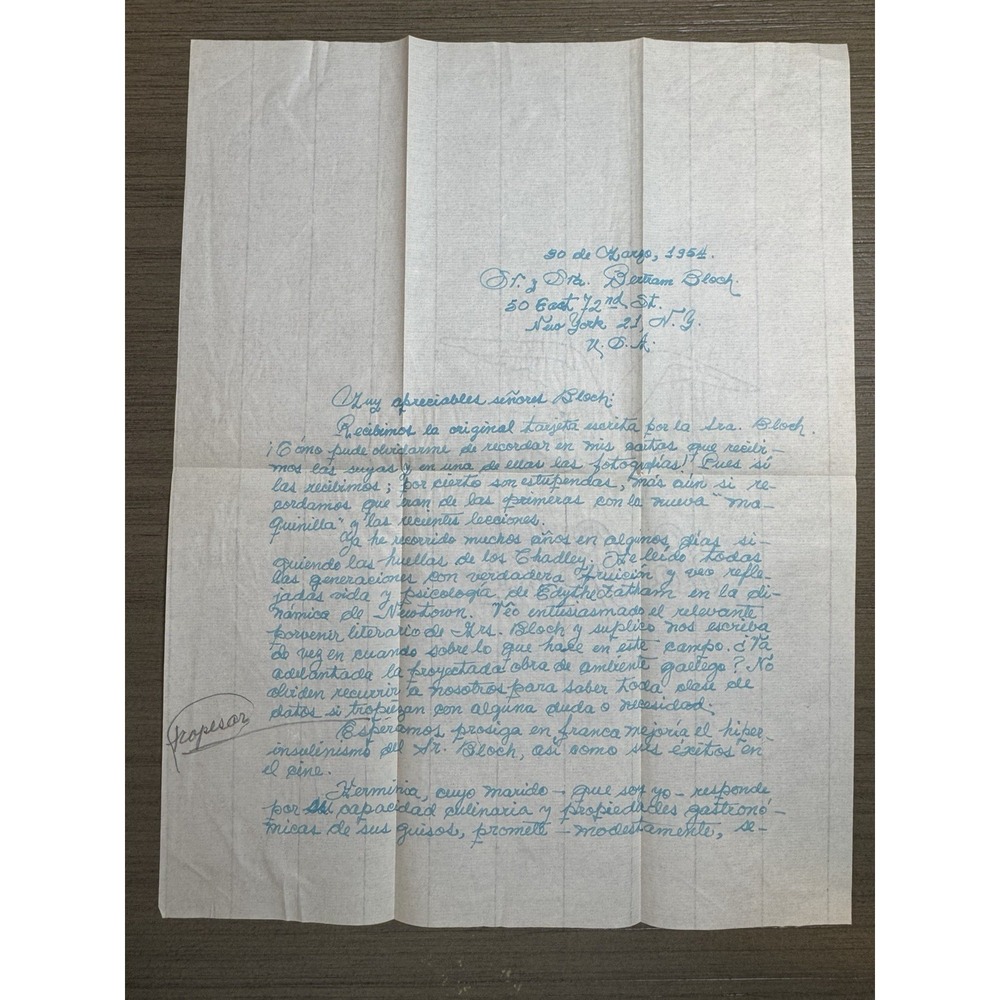 30 de Marzo, 1954.
Sr. y Sra. Bertram Bloch.
50 East 72nd St.
New York 21, N.Y.
U.S.A.
Muy apreciables señores Bloch:
Recibimos la original tarjeta escrita por la Sra. Bloch.
¡Cómo pude olvidarme de recordar en mis cartas que recibi-
mos las suyas y en una de ellas las fotografías!! Pues sí
las recibimos; por cierto son estupendas, más aún si re-
cordamos que eran de las primeras con la nueva "ma-
quinilla" y las recientes lecciones.
Ya he recorrido muchos años en algunos días si-
guiendo las huellas de los Chadley. He leído todas
las generaciones con verdadera fruición y veo refle-
jadas vida y psicología de Edythe Latham en la di-
námica de Newtown. Véo entusiasmado el relevante
porvenir literario de Mrs. Bloch y suplico nos escriba
de vez en cuando sobre lo que hace en este campo. ¿Va
adelantada la proyectada obra de ambiente gallego? No
olviden recurrir a nosotros para saber toda clase de
datos si tropiezan con alguna duda o necesidad.
Tropesar
Esperamos prosiga en franca mejoría el hiper-
insulinismo del Sr. Bloch, así como sus éxitos en
el cine.
Herminia, cuyo marido - que soy yo - responde
por su capacidad culinaria y propiedades gastronó-
micas de sus guisos, promete - modestamente, se-